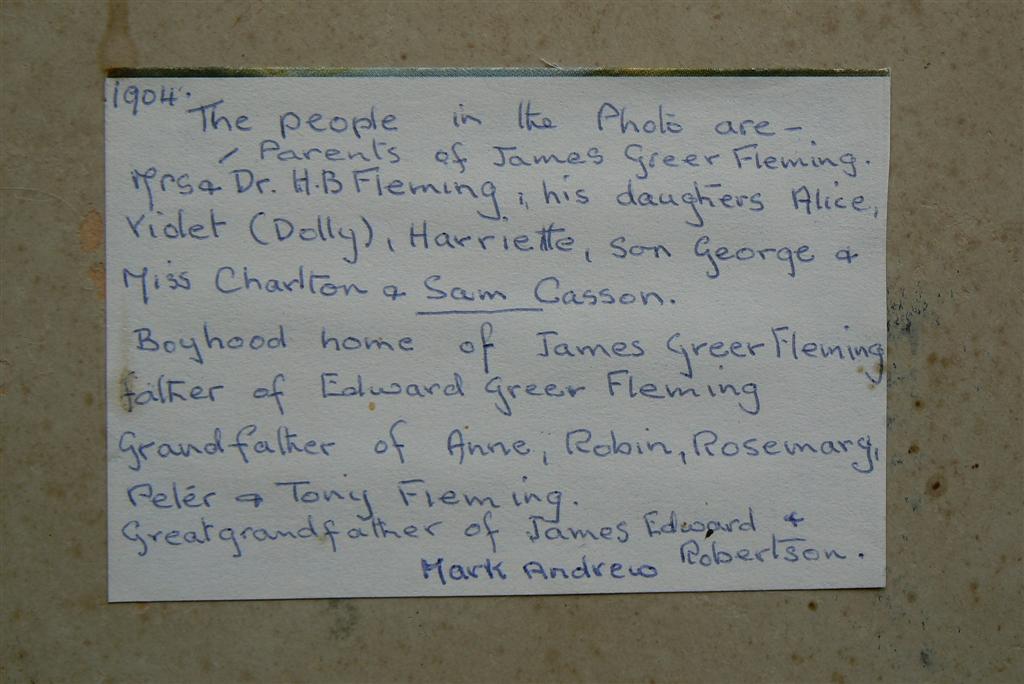 1904.
The people in the Photo are -
/ Parents of James Greer Fleming.
Mrs & Dr. H.B Fleming, his daughters Alice,
Violet (Dolly), Harriette, son George &
Miss Charlton & Sam Casson.
Boyhood home of James Greer Fleming
father of Edward Greer Fleming
Grandfather of Anne, Robin, Rosemary,
Peter & Tony Fleming.
Greatgrandfather of James Edward &
Mark Andrew Robertson.